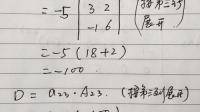 = -5 | 3 2 | (按第三行
| -1 6 | 展开)
= -5 (18+2)
= -100
D = a₂₃·A₂₃. (按第三列展开)